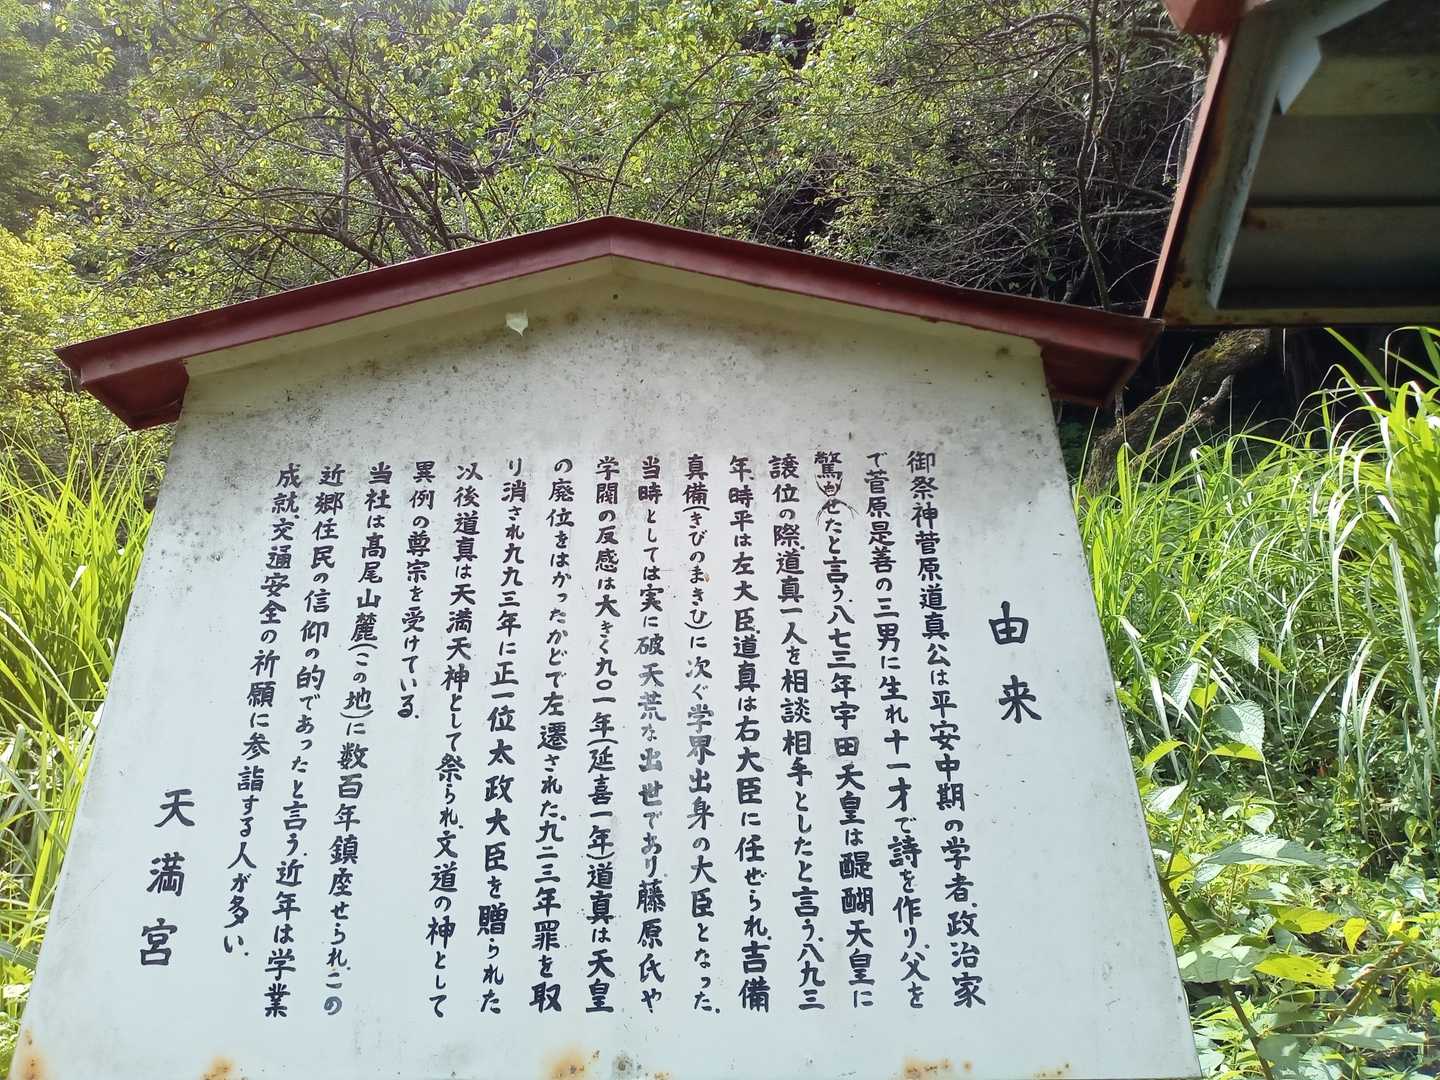 由来
御祭神菅原道真公は平安中期の学者、政治家
で菅原是善の三男に生れ十一才で詩を作り、父を
驚かせたと言う、八七三年宇田天皇は醍醐天皇に
譲位の際、道真一人を相談相手としたと言う、八九三
年、時平は左大臣、道真は右大臣に任ぜられ、吉備
真備(きびのまきび)に次ぐ学界出身の大臣となった.
当時としては実に破天荒な出世であり藤原氏や
学閥の反感は大きく九〇一年(延喜一年)道真は天皇
の廃位をはかったかどで左遷された.九二三年罪を取
り消され九九三年に正一位太政大臣を贈られた
以後道真は天満天神として祭られ、文道の神として
異例の尊宗を受けている.
当社は高尾山麓(この地)に数百年鎮座せられ、この
近郷住民の信仰の的であったと言う、近年は学業
成就、交通安全の祈願に参詣する人が多い.
天満宮